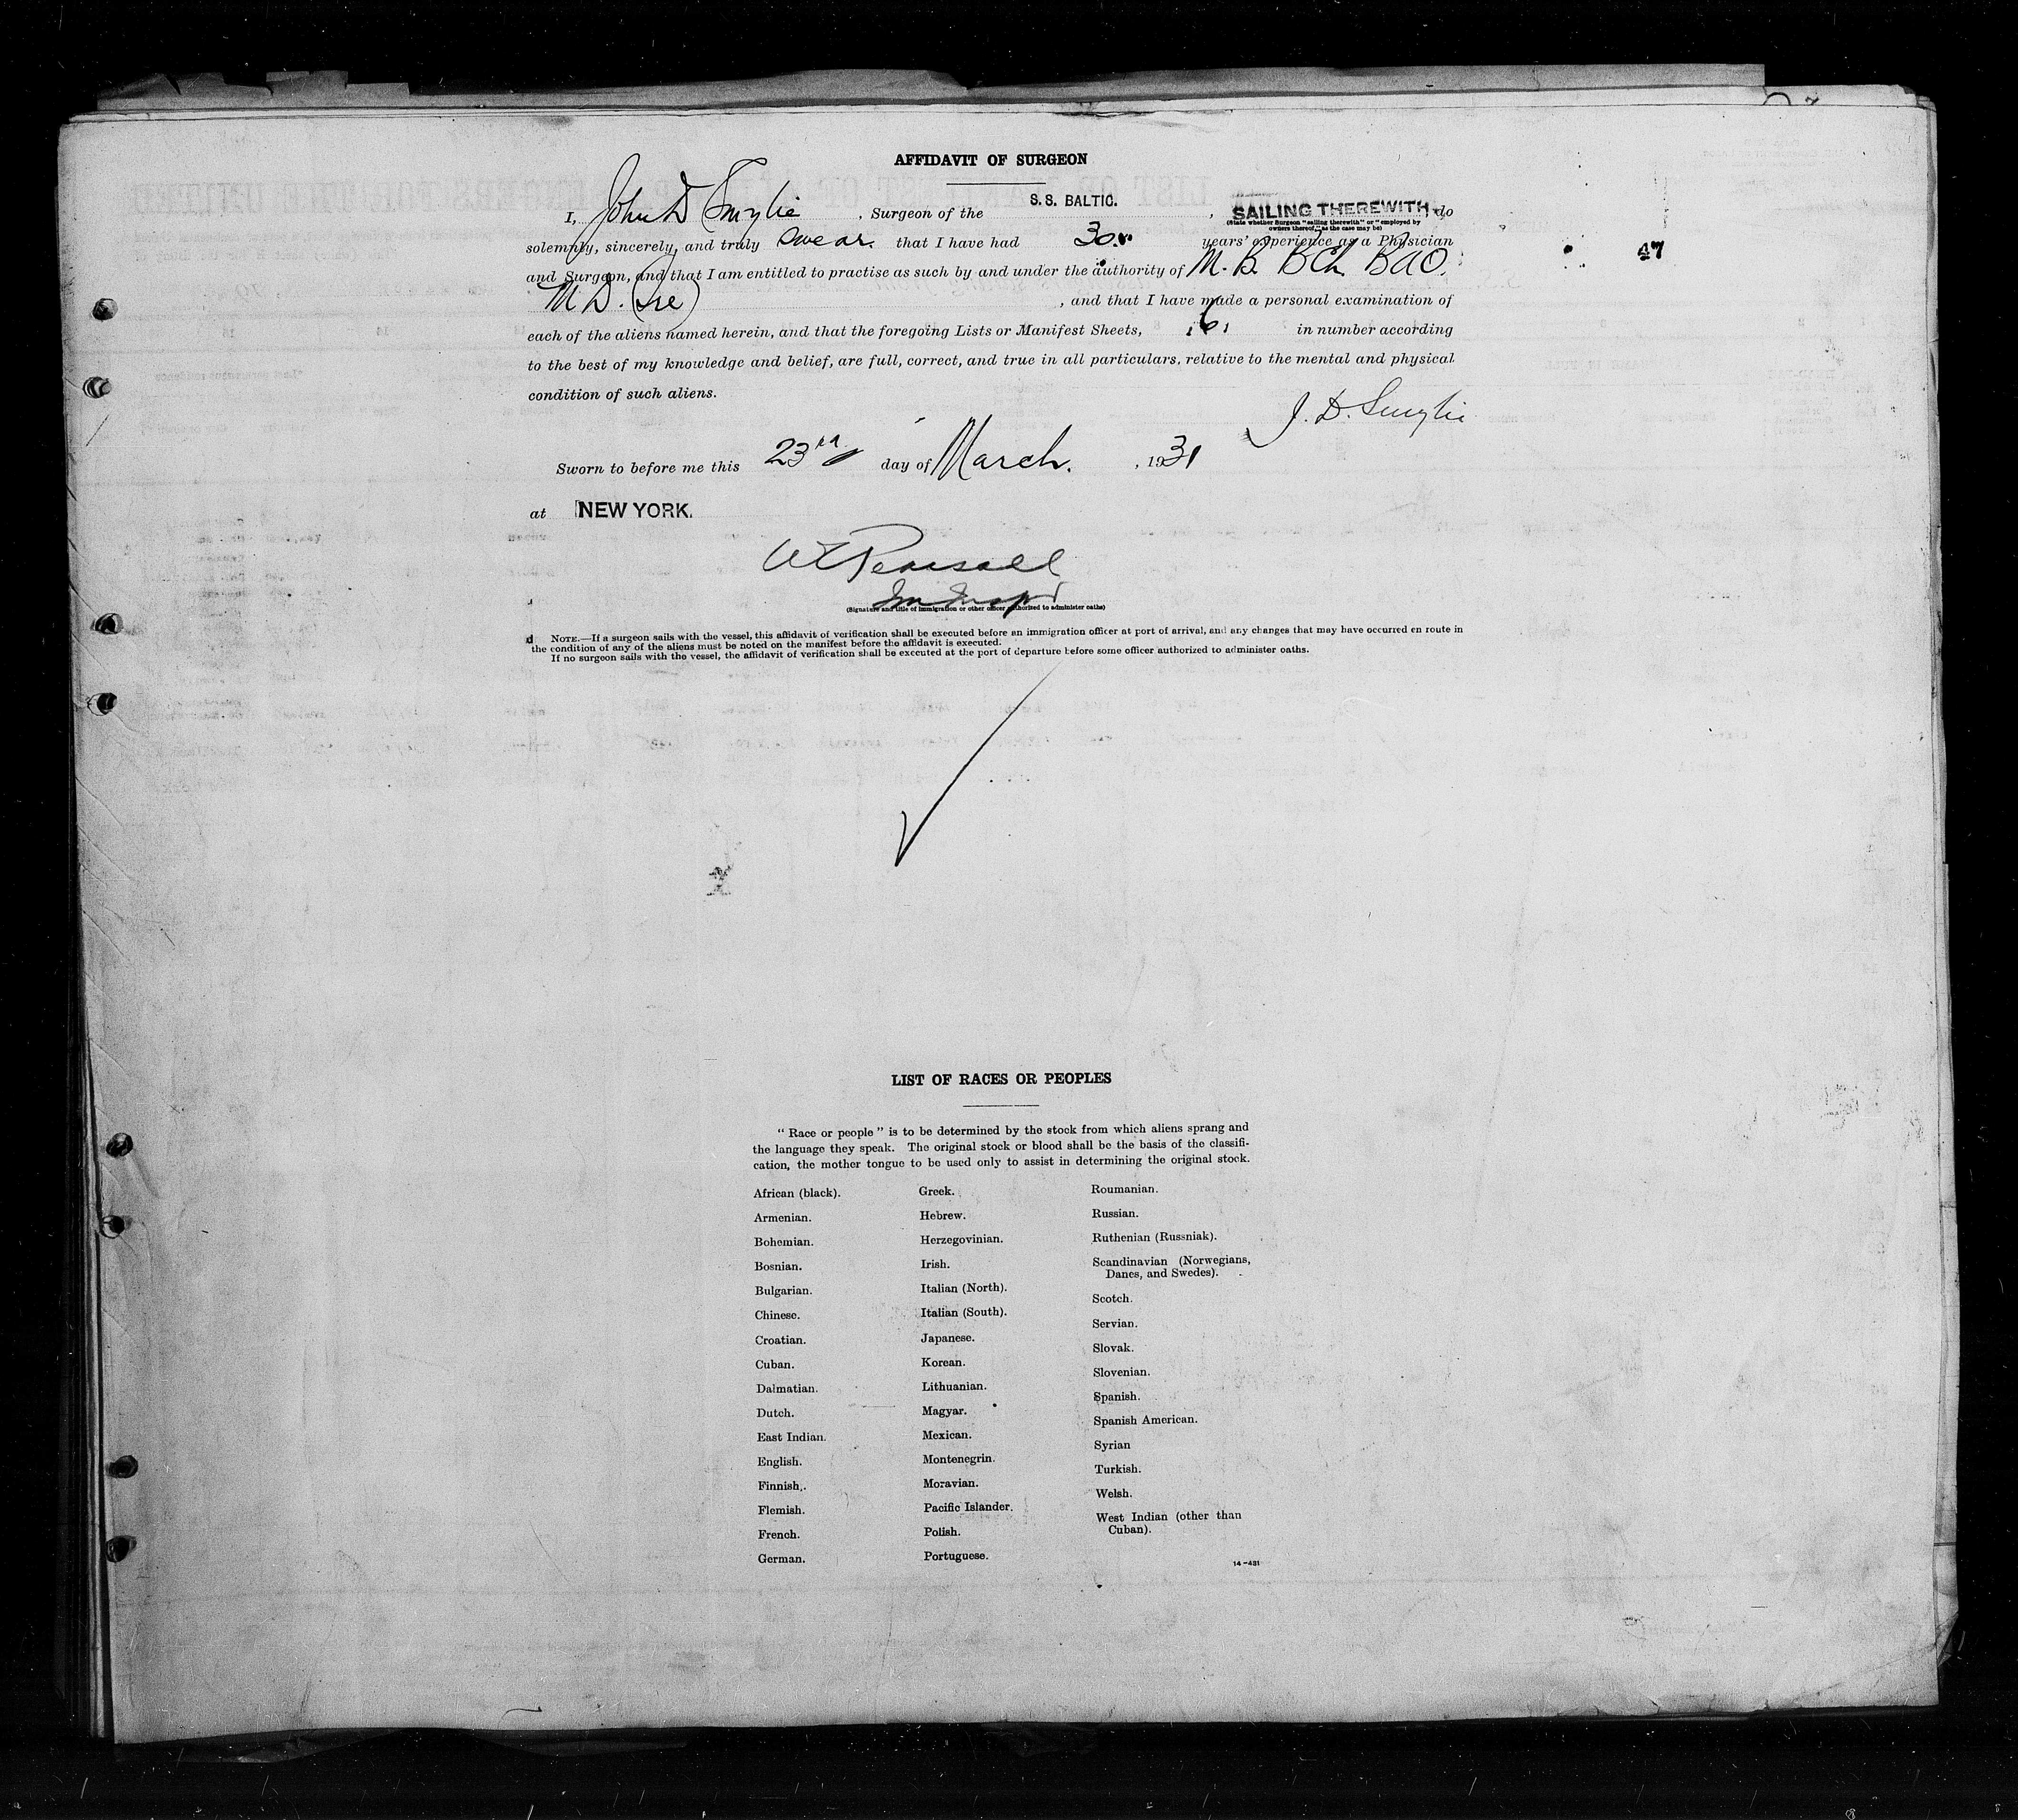 AFFIDAVIT OF SURGEON
I, John D Smylie, Surgeon of the S. S. BALTIC. , SAILING THEREWITH. do
(State whether Surgeon "sailing therewith" or "employed by
owners thereof," as the case may be)
solemnly, sincerely, and truly swear. that I have had 30. years' experience as a Physician
and Surgeon, and that I am entitled to practise as such by and under the authority of M. B. BCh. BAO.
M D. (Ire) , and that I have made a personal examination of
each of the aliens named herein, and that the foregoing Lists or Manifest Sheets, 6 in number according
to the best of my knowledge and belief, are full, correct, and true in all particulars, relative to the mental and physical
condition of such aliens.
47
J. D. Smylie
Sworn to before me this 23rd day of March. , 1931
at NEW YORK.
W E Pearsall
Im Inspr
(Signature and title of immigration or other officer authorized to administer oaths)
NOTE.—If a surgeon sails with the vessel, this affidavit of verification shall be executed before an immigration officer at port of arrival, and any changes that may have occurred en route in
the condition of any of the aliens must be noted on the manifest before the affidavit is executed.
If no surgeon sails with the vessel, the affidavit of verification shall be executed at the port of departure before some officer authorized to administer oaths.
LIST OF RACES OR PEOPLES
" Race or people " is to be determined by the stock from which aliens sprang and
the language they speak. The original stock or blood shall be the basis of the classifi-
cation, the mother tongue to be used only to assist in determining the original stock.
African (black).
Armenian.
Bohemian.
Bosnian.
Bulgarian.
Chinese.
Croatian.
Cuban.
Dalmatian.
Dutch.
East Indian.
English.
Finnish.
Flemish.
French.
German.
Greek.
Hebrew.
Herzegovinian.
Irish.
Italian (North).
Italian (South).
Japanese.
Korean.
Lithuanian.
Magyar.
Mexican.
Montenegrin.
Moravian.
Pacific Islander.
Polish.
Portuguese.
Roumanian.
Russian.
Ruthenian (Russniak).
Scandinavian (Norwegians,
Danes, and Swedes).
Scotch.
Servian.
Slovak.
Slovenian.
Spanish.
Spanish American.
Syrian
Turkish.
Welsh.
West Indian (other than
Cuban).
14-431